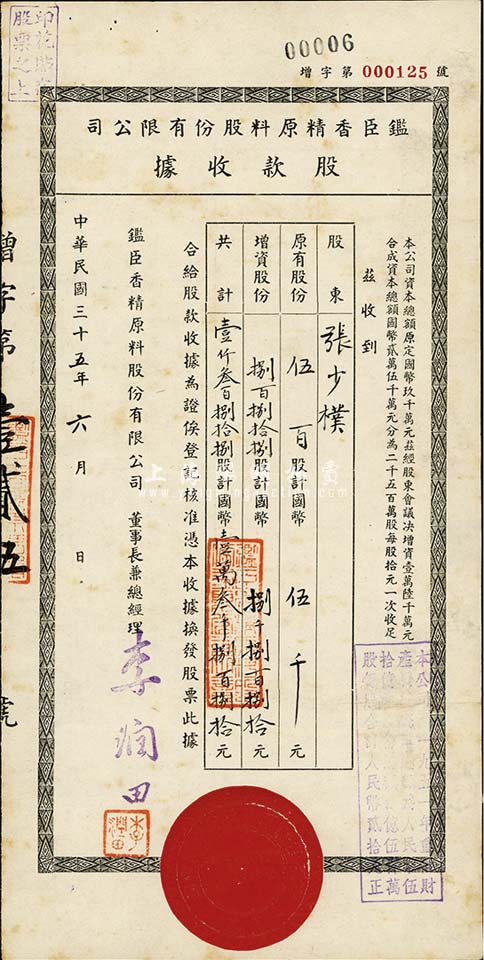 00006
增字第 000125 號
印花貼在
股票之上
鑑臣香精原料股份有限公司
股款收據
本公司資本總額原定國幣玖千萬元茲經股東會議決增資壹萬陸千萬元
合成資本總額國幣貳萬伍千萬元分為二千五百萬股每股拾元一次收足
茲收到
股東 張少樸
原有股份 伍百股計國幣 伍千元
增資股份 捌百捌拾捌股計國幣 捌千捌百捌拾元
共計 壹仟叁百捌拾捌股計國幣 壹萬叁千捌百捌拾元
合給股款收據為證俟登記核准憑本收據換發股票此據
鑑臣香精原料股份有限公司 董事長兼總經理 李潤田
李潤田
中華民國三十五年六月 日
增字第壹貳五號